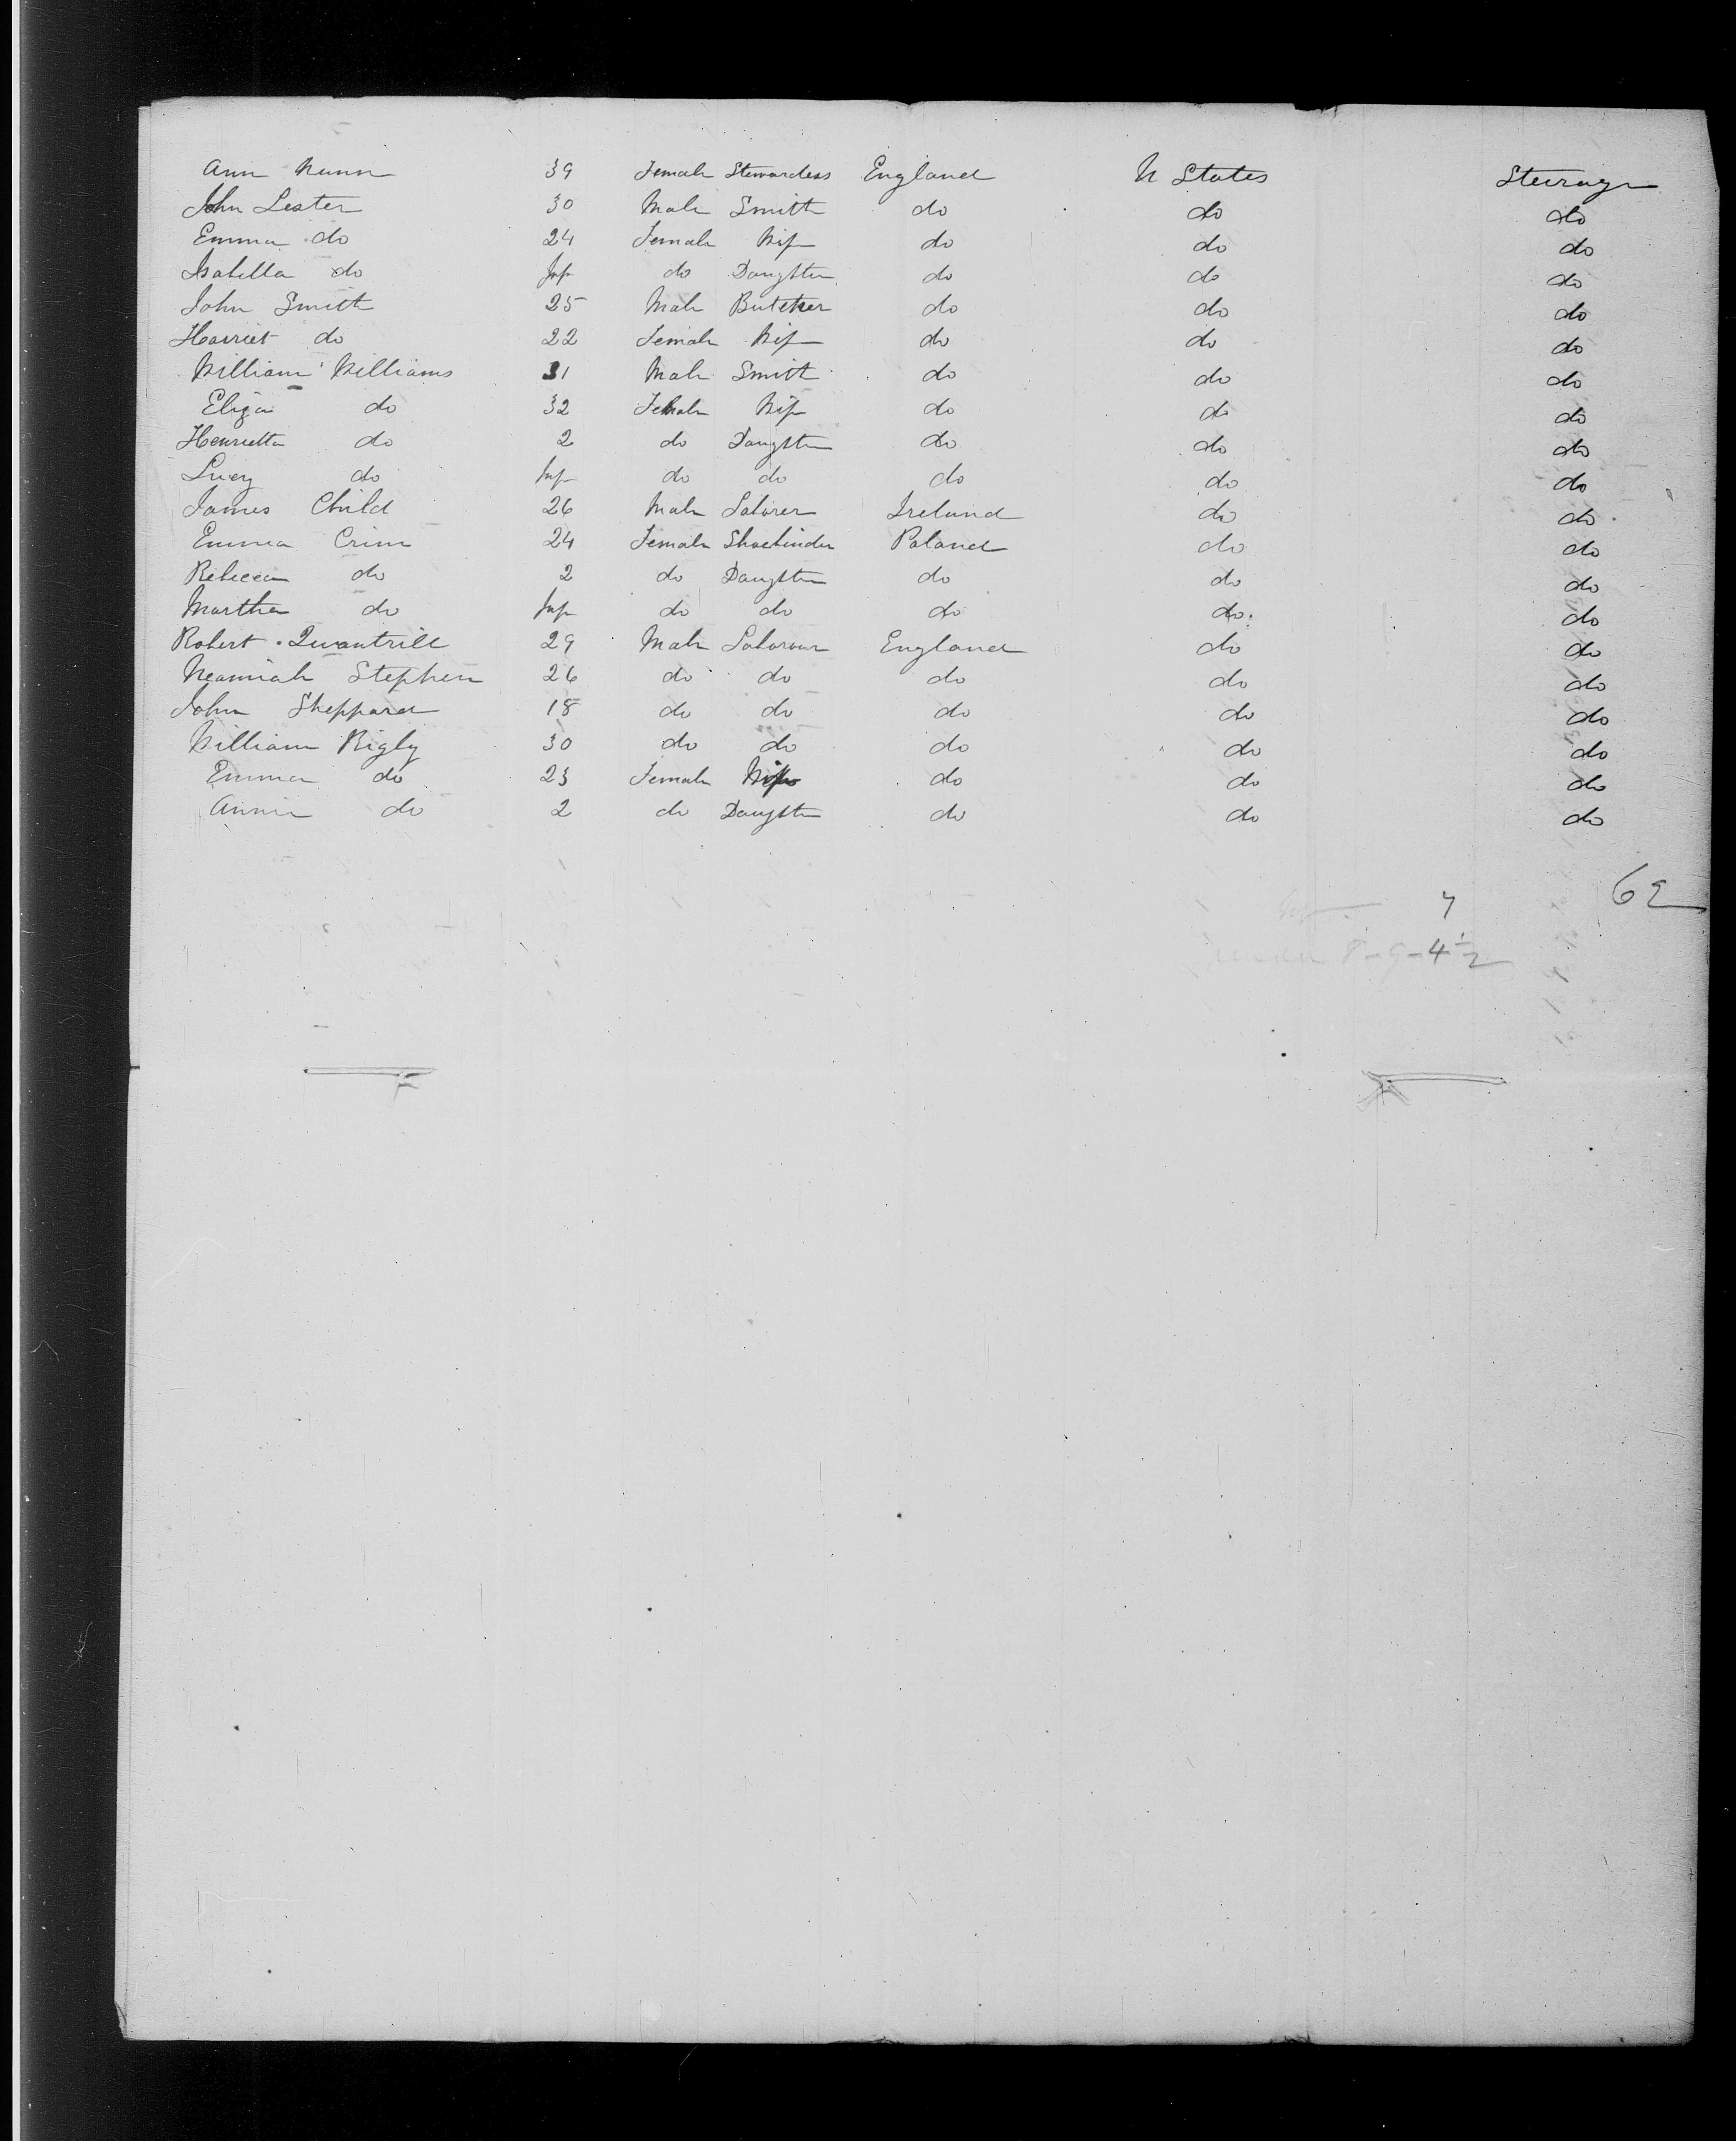 Ann Nunn 39 Female Stewardess England U States Steerage
John Lester 30 Male Smith do do do
Emma do 24 Female Wife do do do
Isabella do Inf do Daughter do do do
John Smith 25 Male Butcher do do do
Harriet do 22 Female Wife do do do
William Williams 31 Male Smith do do do
Eliza do 32 Female Wife do do do
Henrietta do 2 do Daughter do do do
Lucy do Inf do do do do do
James Child 26 Male Laborer Ireland do do
Emma Crim 24 Female Shoebinder Poland do do
Rebecca do 2 do Daughter do do do
Martha do Inf do do do do do
Robert Quantrill 29 Male Labourer England do do
Neamiah Stephen 26 do do do do do
John Sheppard 18 do do do do do
William Rigby 30 do do do do do
Emma do 23 Female Wife do do do
Annie do 2 do Daughter do do do
62
7
under 8-9-4½